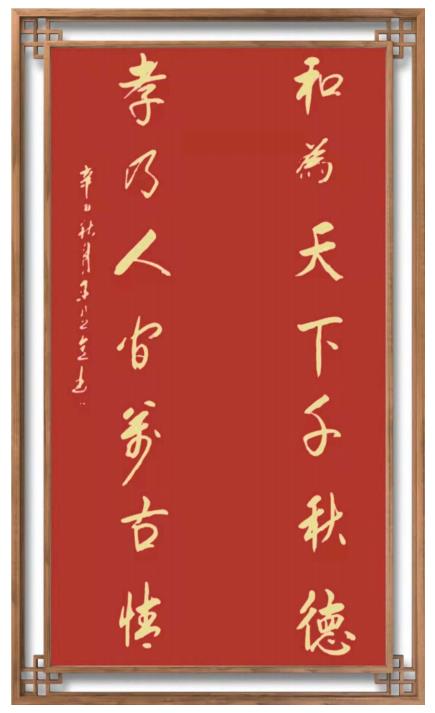 和為天下千秋德
孝乃人间萬古情
辛丑秋月